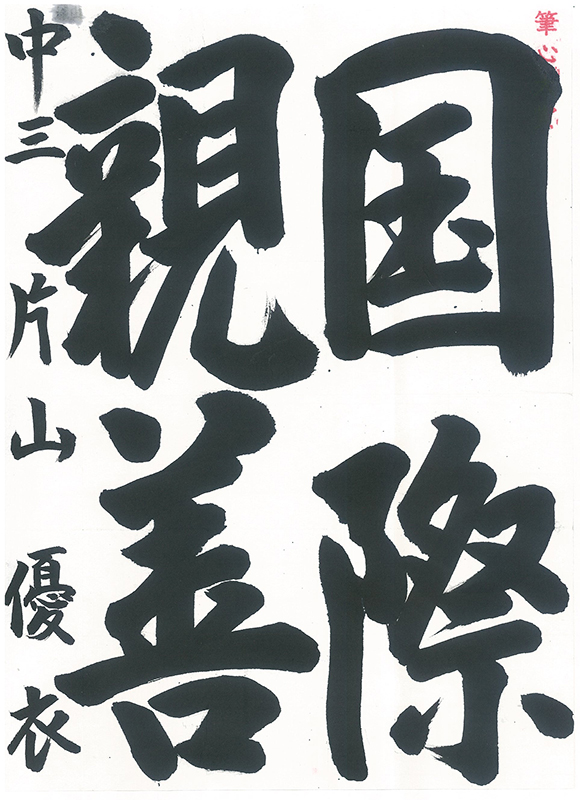 国際
親善
中三 片山優衣
筆